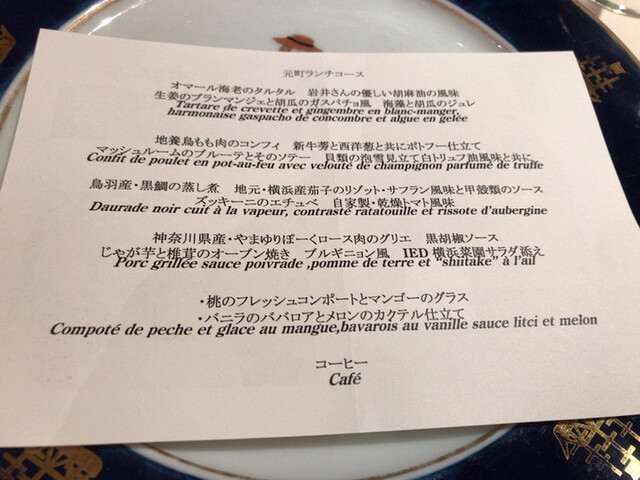 元町ランチコース
オマール海老のタルタル 岩井さんの優しい胡麻油の風味
生姜のブランマンジェと胡瓜のガスパチョ風 海藻と胡瓜のジュレ
Tartare de crevette et gingembre en blanc-manger,
harmonaise gaspacho de concombre et algue en gelée
地養鳥もも肉のコンフィ 新牛蒡と西洋葱と共にポトフー仕立て
マッシュルームのブルーテとそのソテー 貝類の泡雪見立て白トリュフ油風味と共に
Confit de poulet en pot-au-feu avec velouté de champignon parfumé de truffe
鳥羽産・黒鯛の蒸し煮 地元・横浜産茄子のリゾット・サフラン風味と甲殻類のソース
ズッキーニのエチュベ 自家製・乾燥トマト風味
Daurade noir cuit à la vapeur, contrasté ratatouille et rissote d'aubergine
神奈川県産・やまゆりぽーくロース肉のグリエ 黒胡椒ソース
じゃが芋と椎茸のオーブン焼き ブルギニョン風 IED 横浜菜園サラダ添え
Porc grillée sauce poivrade ,pomme de terre et "shiitake" à l'ail
・桃のフレッシュコンポートとマンゴーのグラス
・バニラのババロアとメロンのカクテル仕立て
Compoté de peche et glace au mangue,bavarois au vanille sauce litci et melon
コーヒー
Café